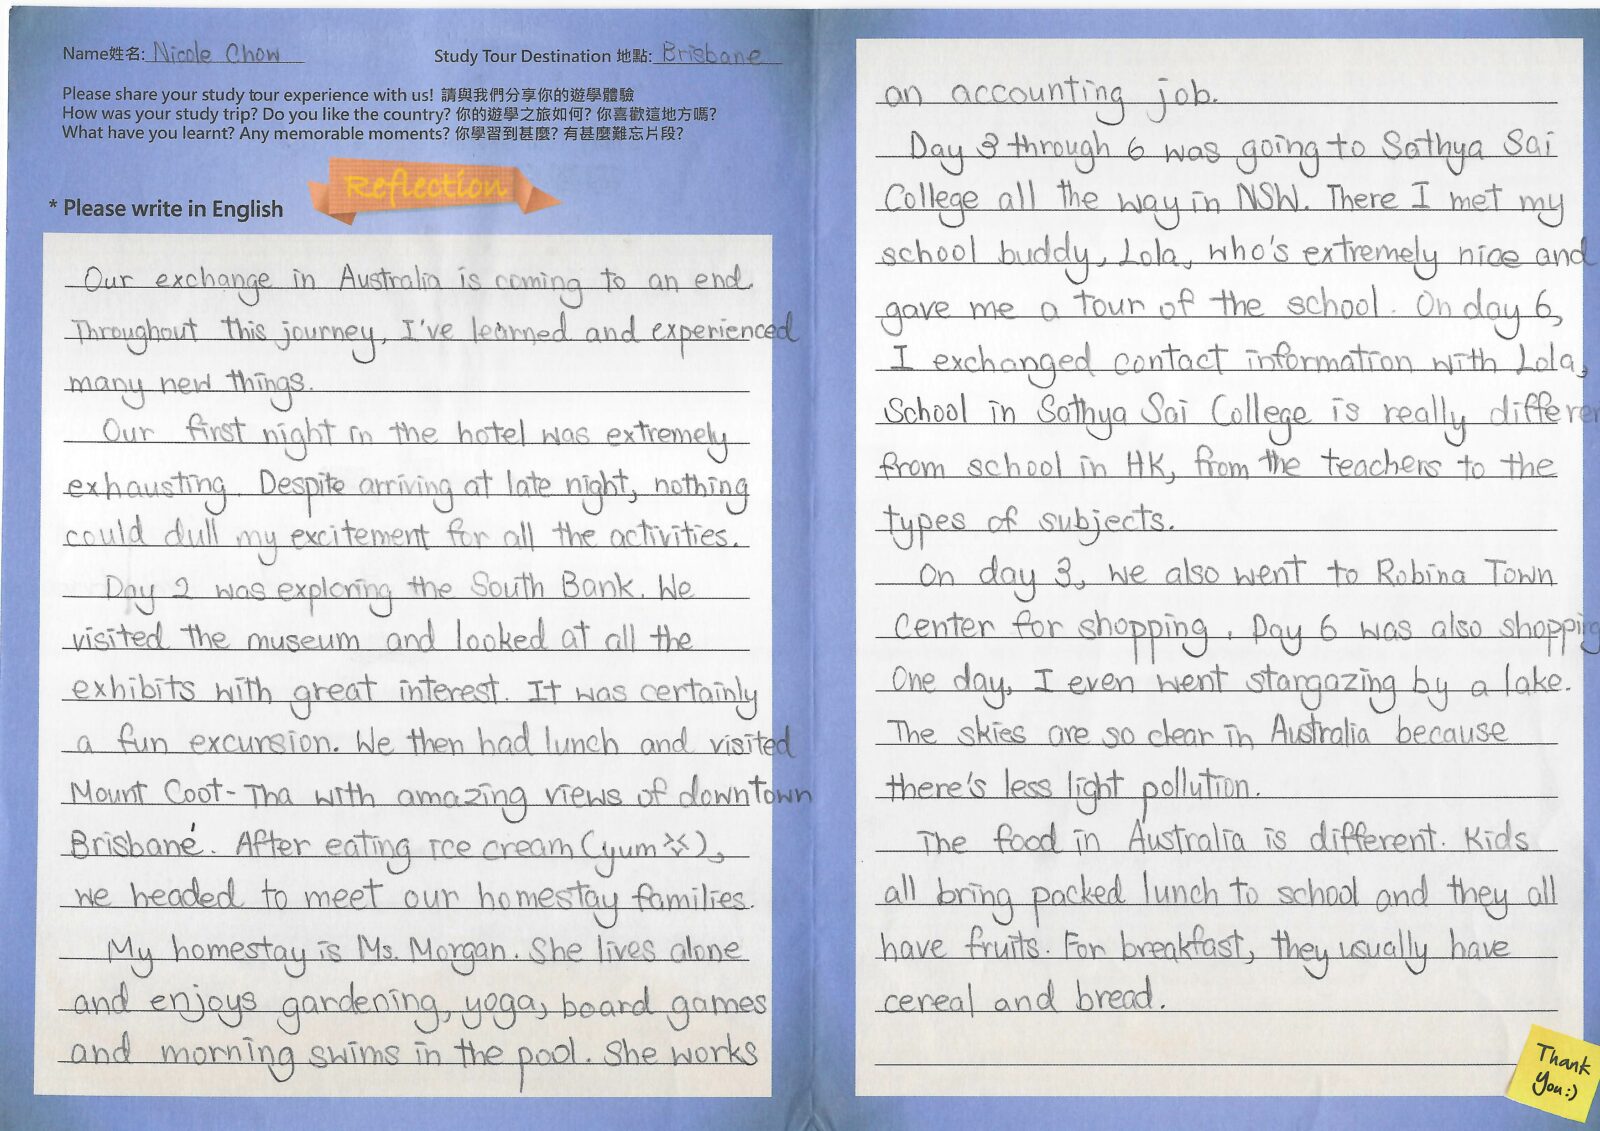 Name姓名: Nicole Chow
Study Tour Destination 地點: Brisbane
Please share your study tour experience with us! 請與我們分享你的遊學體驗
How was your study trip? Do you like the country? 你的遊學之旅如何? 你喜歡這地方嗎?
What have you learnt? Any memorable moments? 你學習到甚麼? 有甚麼難忘片段?
Reflection
* Please write in English
Our exchange in Australia is coming to an end.
Throughout this journey, I've learned and experienced
many new things.
Our first night in the hotel was extremely
exhausting. Despite arriving at late night, nothing
could dull my excitement for all the activities.
Day 2 was exploring the South Bank. We
visited the museum and looked at all the
exhibits with great interest. It was certainly
a fun excursion. We then had lunch and visited
Mount Coot-Tha with amazing views of downtown
Brisbane. After eating ice cream (yum),
we headed to meet our homestay families.
My homestay is Ms. Morgan. She lives alone
and enjoys gardening, yoga, board games
and morning swims in the pool. She works
an accounting job.
Day 3 through 6 was going to Sathya Sai
College all the way in NSW. There I met my
school buddy, Lola, who's extremely nice and
gave me a tour of the school. On day 6,
I exchanged contact information with Lola,
School in Sathya Sai College is really differen
from school in HK, from the teachers to the
types of subjects.
On day 3, we also went to Robina Town
Center for shopping. Day 6 was also shopping
One day, I even went stargazing by a lake.
The skies are so clear in Australia because
there's less light pollution.
The food in Australia is different. Kids
all bring packed lunch to school and they all
have fruits. For breakfast, they usually have
cereal and bread.
Thank
You:)